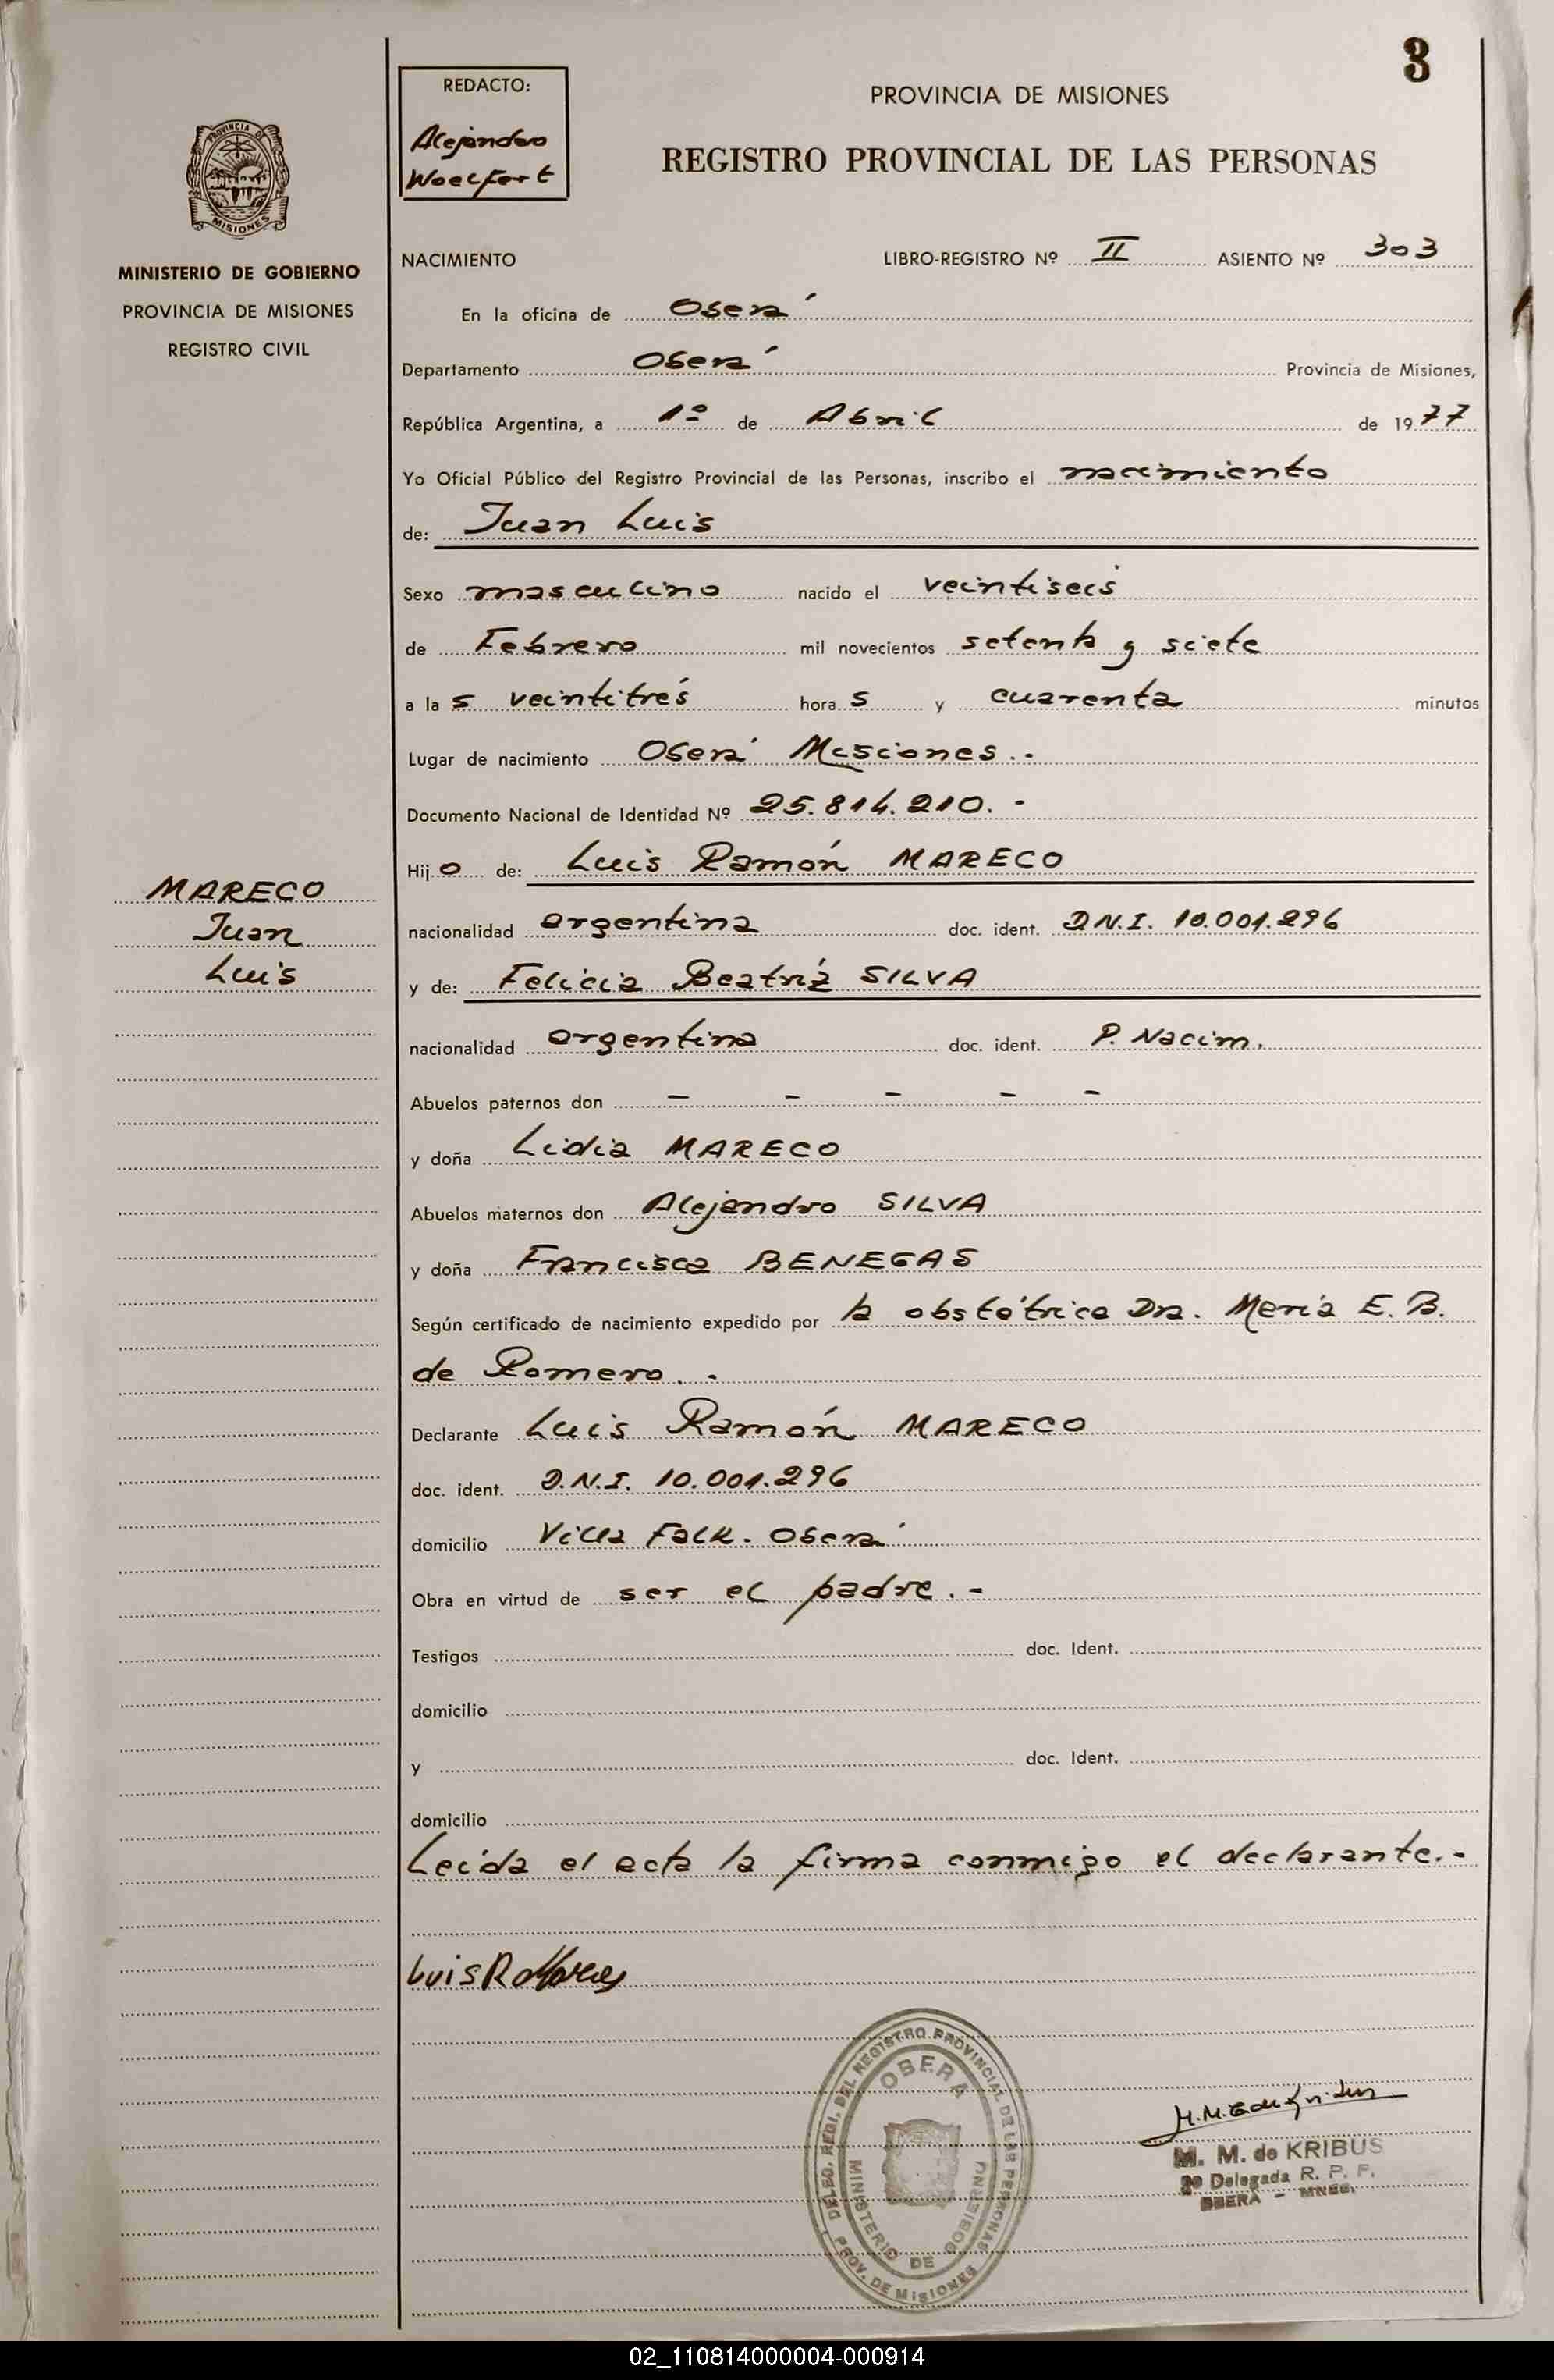 3
REDACTO:
Alejandro
Woelfert
PROVINCIA DE MISIONES
REGISTRO PROVINCIAL DE LAS PERSONAS
PROVINCIA DE
MISIONES
MINISTERIO DE GOBIERNO
PROVINCIA DE MISIONES
REGISTRO CIVIL
NACIMIENTO LIBRO-REGISTRO Nº II ASIENTO Nº 303
En la oficina de Oberá
Departamento Oberá Provincia de Misiones,
República Argentina, a 1º de Abril de 1977
Yo Oficial Público del Registro Provincial de las Personas, inscribo el nacimiento
de: Juan Luis
Sexo masculino nacido el veintiseis
de Febrero mil novecientos setenta y siete
a las veintitrés horas y cuarenta minutos
Lugar de nacimiento Oberá Misiones.-
Documento Nacional de Identidad Nº 25.814.210.-
Hijo de: Luis Ramón MARECO
MARECO
Juan
Luis
nacionalidad argentina doc. ident. D.N.I. 10.001.296
y de: Felicia Beatríz SILVA
nacionalidad argentina doc. ident. P. Nacim.
Abuelos paternos don - - - - -
y doña Lidia MARECO
Abuelos maternos don Alejandro SILVA
y doña Francisca BENEGAS
Según certificado de nacimiento expedido por la obstétrica Dra. María E. B.
de Romero.-
Declarante Luis Ramón MARECO
doc. ident. D.N.I. 10.001.296
domicilio Villa Falk. Oberá
Obra en virtud de ser el padre.-
Testigos doc. Ident.
domicilio
y doc. Ident.
domicilio
Leída el acta la firma conmigo el declarante.-
Luis R Mareco
DELEG. REGI. DEL REGISTRO PROVINCIAL DE LAS PERSONAS
OBERA
MINISTERIO DE GOBIERNO
PROV. DE MISIONES
M. M. de KRIBUS
Delegada R. P. P.
OBERA - MNES.
02_110814000004-000914